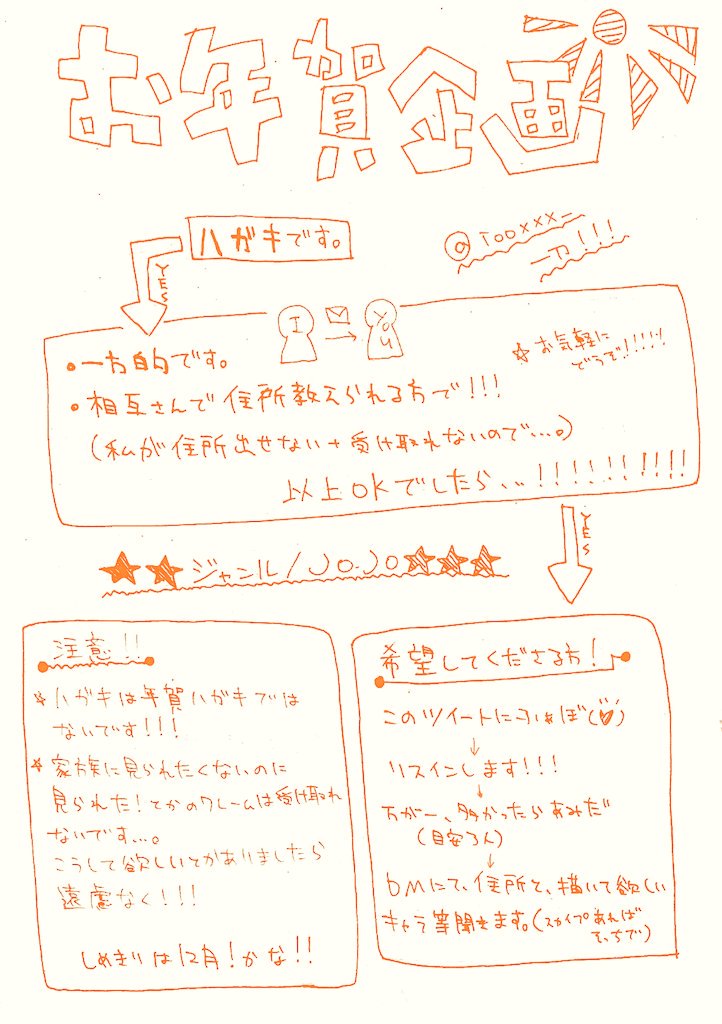 お年賀企画
ハガキです。
YES
一方!!!
I
You
・一方的です。
☆お気軽に
どうぞ!!!!!!
・相互さんで住所教えられる方で!!!
(私が住所出せない+受け取れないので…。)
以上OKでしたら…!!!!!!!!!!
YES
★★ジャンル/JOJO★★★
注意!!
☆ハガキは年賀ハガキでは
ないです!!!
☆家族に見られたくないのに
見られた!とかのクレームは受け取れ
ないです…。
こうして欲しいとかありましたら
遠慮なく!!!
しめきりは12月!かな!!
希望してくださる方!
このツイートにふぁぼ(♥)
↓
リスインします!!!
↓
万が一、多かったらあみだ
(目安3人)
↓
DMにて、住所と、描いて欲しい
キャラ等聞きます。(スカイプあれば
そっちで)